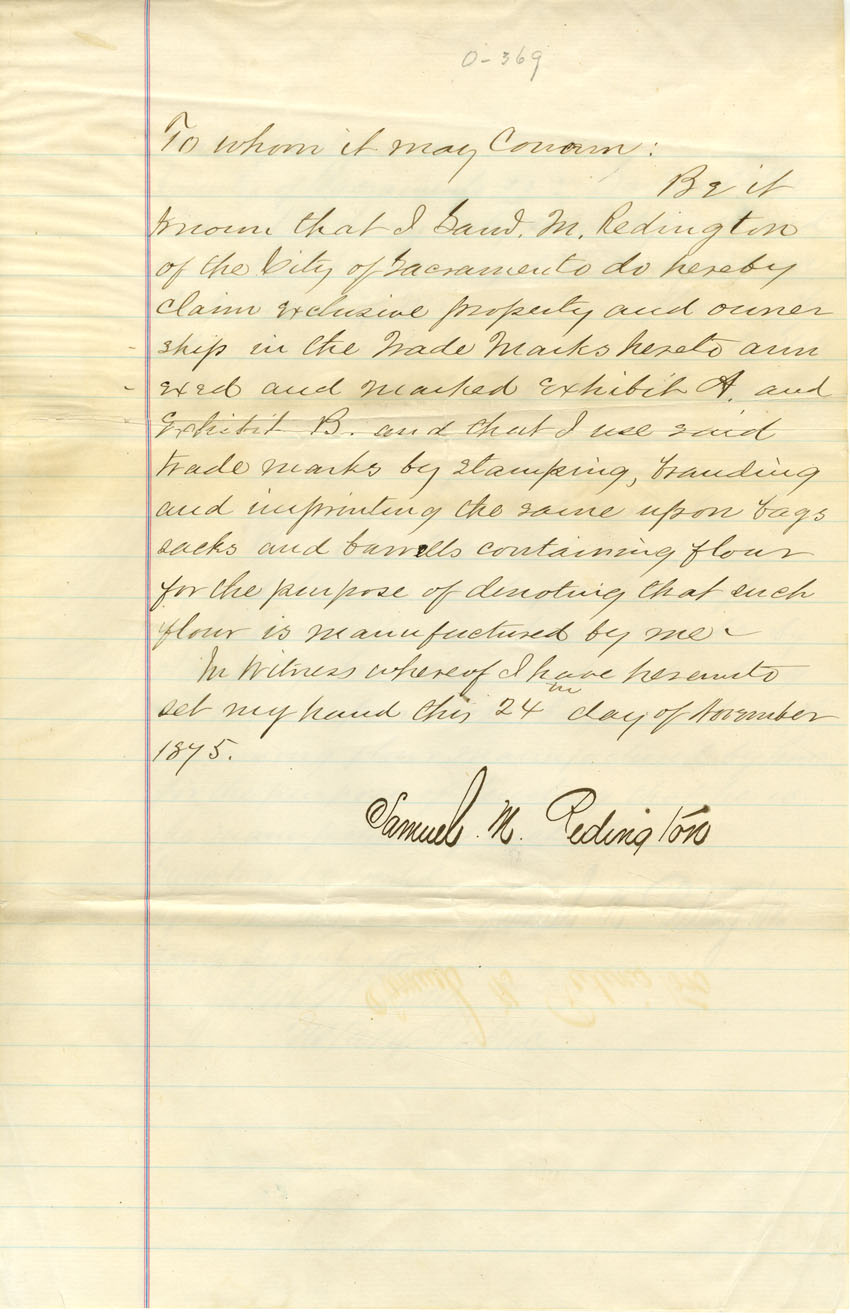 0-369
To whom it may Concern:
Be it
known that I Saml. M. Redington
of the City of Sacramento do hereby
claim exclusive property and owner
ship in the Trade Marks hereto ann
exed and marked Exhibit A. and
Exhibit B. and that I use said
trade marks by stamping, branding
and imprinting the same upon bags
sacks and barrells containing flour
for the purpose of denoting that such
flour is manufactured by me
In Witness whereof I have hereunto
set my hand this 24 day of November
1875.
Samuel. M. Redington